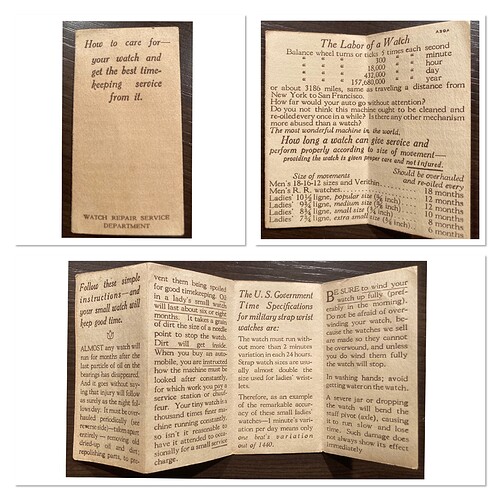 How to care for—
your watch and
get the best time-
keeping service
from it.
WATCH REPAIR SERVICE
DEPARTMENT
The Labor of a Watch
Balance wheel turns or ticks 5 times each second
" " " 300 " " minute
" " " 18,000 " " hour
" " " 432,000 " " day
" " " 157,680,000 " " year
or about 3186 miles, same as traveling a distance from
New York to San Francisco.
How far would your auto go without attention?
Do you not think this machine ought to be cleaned and
re-oiled every once in a while? Is there any other mechanism
more abused than a watch?
The most wonderful machine in the world.
How long a watch can give service and
perform properly according to size of movement—
providing the watch is given proper care and not injured.
Should be overhauled
Size of movements and re-oiled every
Men's 18-16-12 sizes and Verithin 18 months
Men's R. R. watches 12 months
Ladies' 10½ ligne, popular size 12 months
Ladies' 9¾ ligne, medium size 10 months
Ladies' 8¾ ligne, small size 8 months
Ladies' 7¾ ligne, extra small size 6 months
Follow these simple
instructions—and
your small watch will
keep good time.
ALMOST any watch will
run for months after the
last particle of oil on the
bearings has disappeared.
And it goes without say-
ing that injury will follow
as surely as the night fol-
lows day. It must be over-
hauled periodically (see
reverse side)—taken apart
entirely—removing old
dried-up oil and dirt;
repolishing parts, to pre-
vent them being spoiled
for good timekeeping. Oil
in a lady's small watch
will last about six or eight
months. It takes a grain
of dirt the size of a needle
point to stop the watch.
Dirt will get inside.
When you buy an auto-
mobile, you are instructed
how the machine must be
looked after constantly,
for which work you pay a
service station or chauf-
feur. Your tiny watch is a
thousand times finer ma-
chine running constantly,
so isn't it reasonable to
have it attended to occa-
sionally for a small service
charge.
The U. S. Government
Time Specifications
for military strap wrist
watches are:
The watch must run with-
out more than 2 minutes
variation in each 24 hours.
Strap watch sizes are usu-
ally almost double the
size used for ladies' wrist-
lets.
Therefore, as an example
of the remarkable accu-
racy of these small ladies'
watches—1 minute's varia-
tion per day means only
one beat's variation
out of 1440.
BE SURE to wind your
watch up fully (pref-
erably in the morning).
Do not be afraid of over-
winding your watch, be-
cause the watches we sell
are made so they cannot
be overwound, and unless
you do wind them fully
the watch will stop.
In washing hands; avoid
getting water on the watch.
A severe jar or dropping
the watch will bend the
staff pivot (axle), causing
it to run slow and lose
time. Such damage does
not always show its effect
immediately.